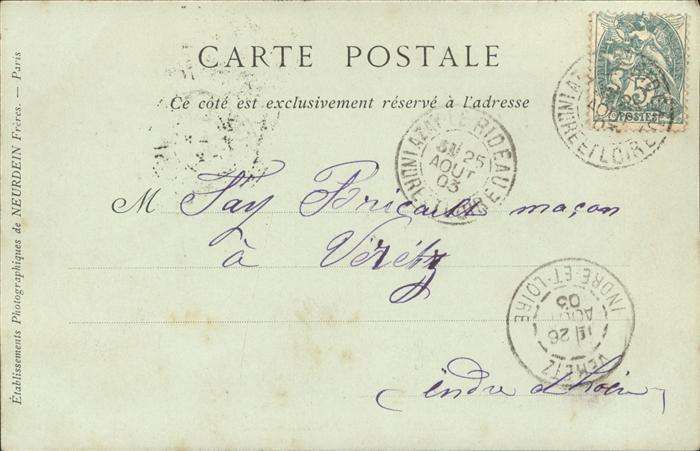 CARTE POSTALE
Ce côté est exclusivement réservé à l'adresse
M Fay Bricault maçon
à Véretz
indre et Loire
AZAY-LE-RIDEAU
25
AOUT
03
INDRE-ET-LOIRE
5
POSTES
INDRE-ET-LOIRE
26
AOUT
03
VERETZ
Établissements Photographiques de NEURDEIN Frères. — Paris